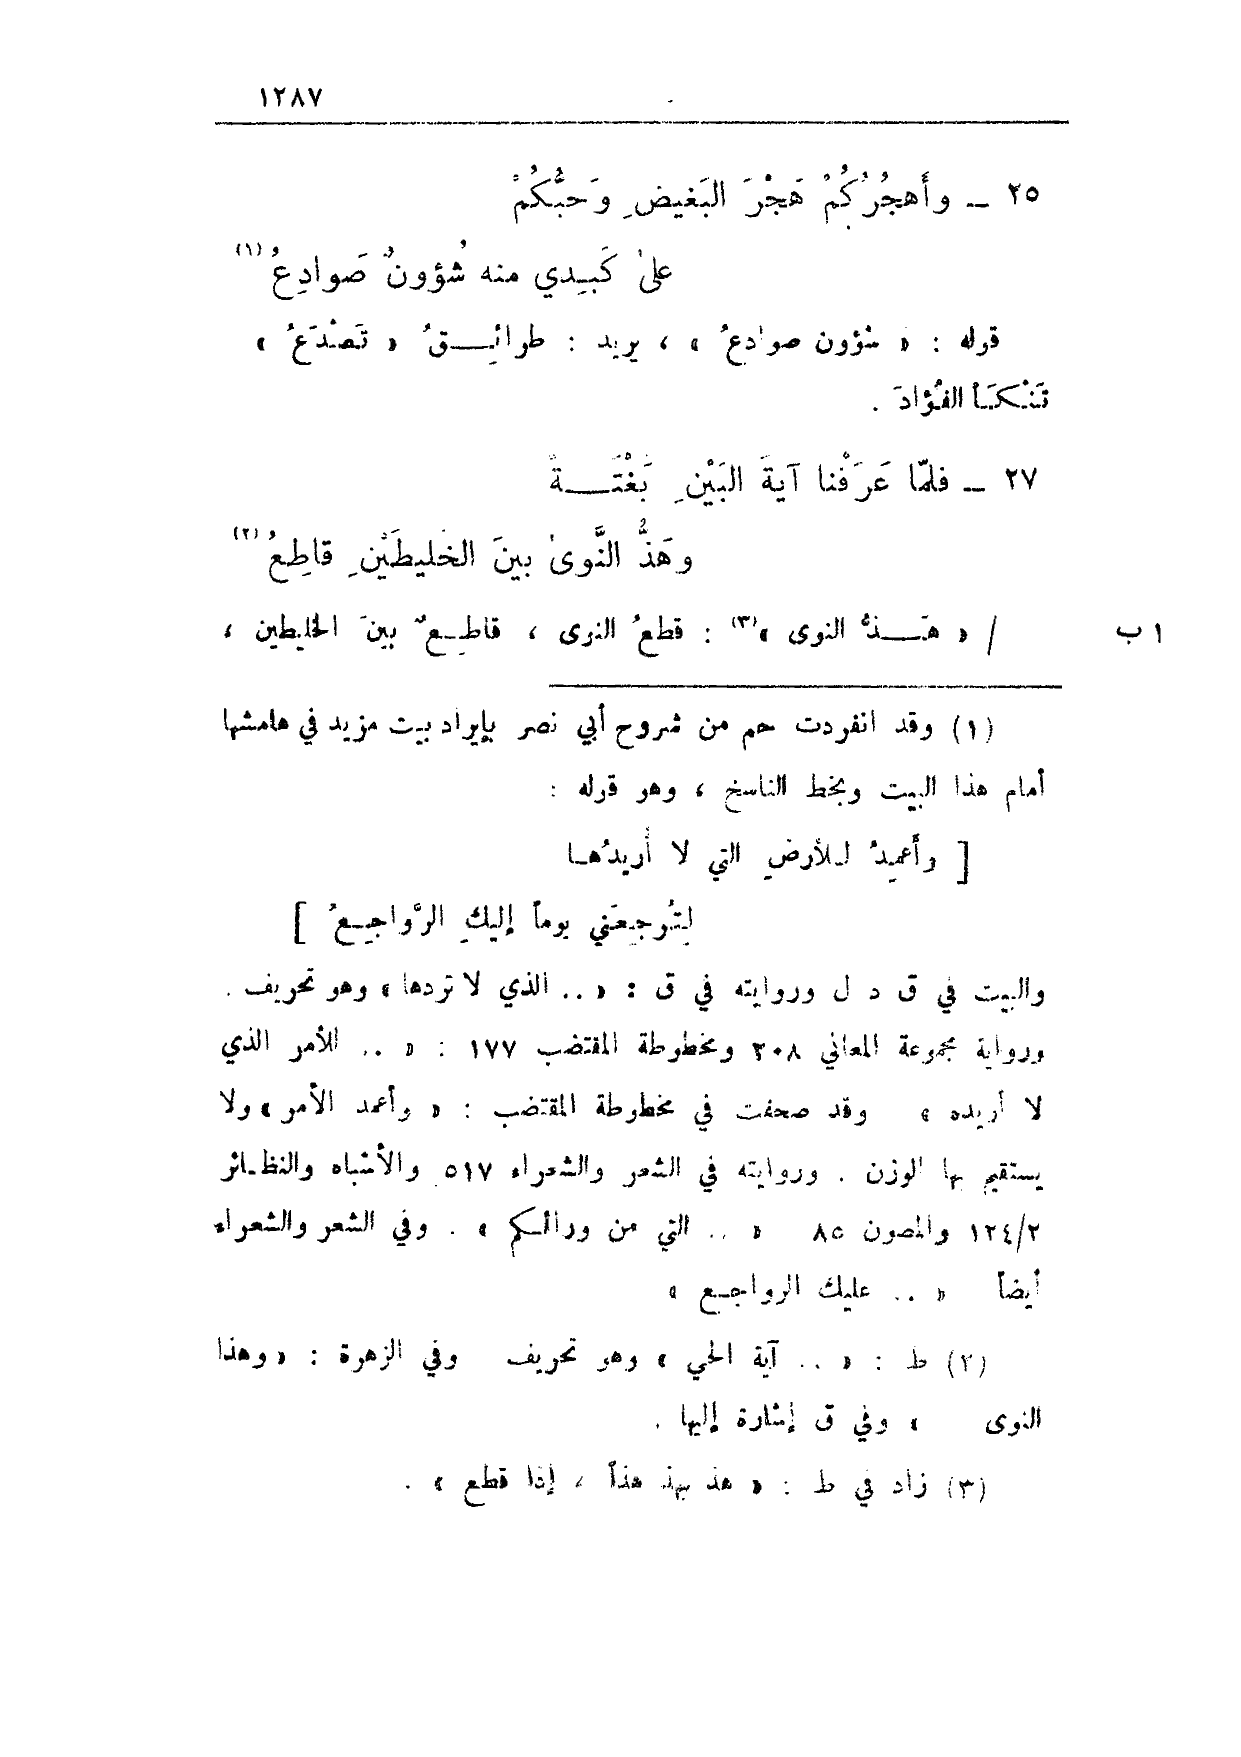 ١٢٨٧
٢٥ ــ وأَهجُرُكُمْ هَجْرَ البَغيضِ وَحبُّكُمْ
علىٰ كَبِدي منه شُؤونٌ صَوادِعُ (١)
قوله : « شؤون صوادعُ » ، يريد : طرائقُ « تَصْدَعُ »
تَنْكَأ الفُؤادَ .
٢٧ ــ فلمّا عَرَفْنا آيةَ البَيْنِ بَغْتَةً
وهَذُّ النَّوىٰ بينَ الخَليطَيْنِ قاطِعُ (٢)
١ ب / « هَذُّ النوى » (٣) : قطعُ النوى ، قاطعٌ بينَ الخليطين ،
(١) وقد انفردت حم من شروح أبي نصر بإيراد بيت مزيد في هامشها
أمام هذا البيت وبخط الناسخ ، وهو قوله :
[ وأعمِدُ للأرضِ التي لا أُريدُها
لِتُرجِعَني يوماً إليكِ الرَّواجِعُ ]
والبيت في ق د ل وروايته في ق : « .. الذي لا تردها » وهو تحريف .
ورواية مجموعة المعاني ٢٠٨ ومخطوطة المقتضب ١٧٧ : « .. للأمر الذي
لا أريده » وقد صحفت في مخطوطة المقتضب : « وأعمد الأمر » ولا
يستقيم بها الوزن . وروايته في الشعر والشعراء ٥١٧ والأشباه والنظائر
١٢٤/٢ والمصون ٨٥ « .. التي من ورائكم » . وفي الشعر والشعراء
أيضاً « .. عليك الرواجع »
(٢) ط : « .. آية الحي » وهو تحريف وفي الزهرة : « وهذا
النوى » وفي ق إشارة إليها .
(٣) زاد في ط : « هذ يهذ هذاً ، إذا قطع » .